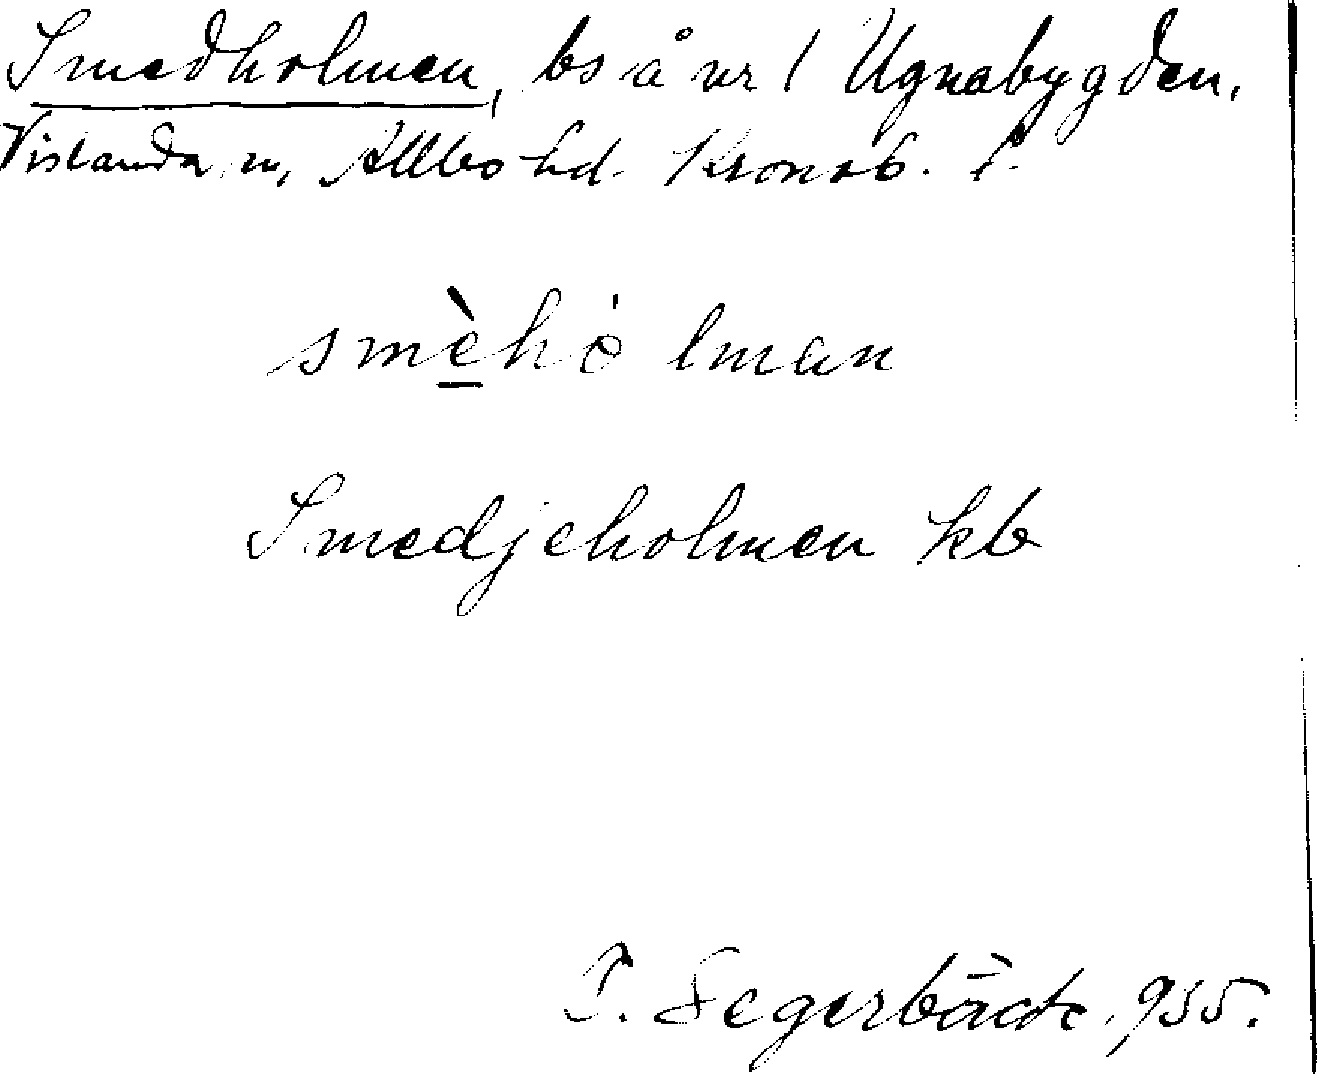 Smedholmen, bs å nr 1 Ugnabygden,
Vislanda sn, Allbo hd. Kronob. l.
smèhò lman
Smedjeholmen kb
P. Segerbäck 1955.